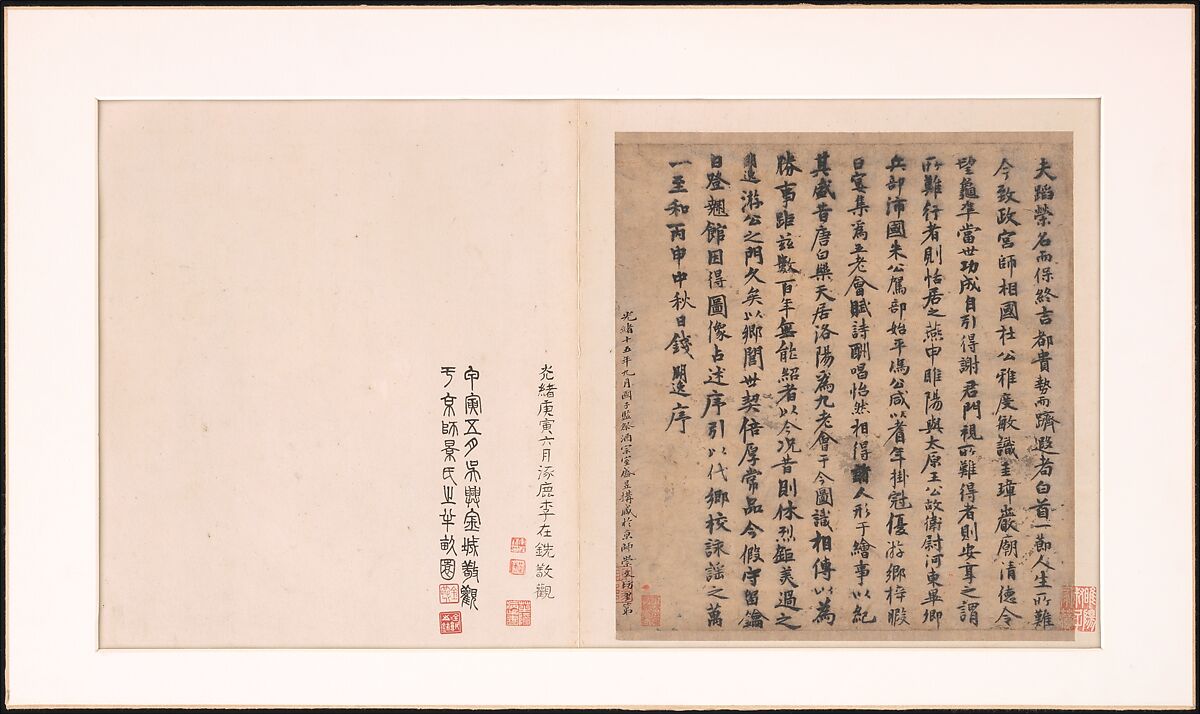 夫蹈榮名而保終吉都貴勢而躋遐耉白首一節人生所難
今致政宮師相國杜公雅度敏識圭璋巖廟清德令
望龜準當世功成自引得謝君門視所難得者則安享之謂
所難行者則恬居之燕申睢陽與太原王公故衛尉河東畢卿
兵部沛國朱公駕部始平馮公咸以耆年掛冠優游鄉梓暇
日宴集為五老會賦詩酬唱怡然相得 人形于繪事以紀
其盛昔唐白樂天居洛陽為九老會于今圖識相傳以為
勝事距玆數百年無能紹者以今況昔則休烈鉅美過之
明逸游公之門久矣以鄉閭世契倍厚常品今假守留鑰
日登翹館因得圖像占述序引以代鄉校詠謠之萬
一至和丙申中秋日錢明逸序
光緒十五年九月國子監祭酒宗室盛昱搆咸於京師
光緒庚寅六月涿鹿李在銑敬觀
甲寅五月吳興金城敬觀
于京師景氏之半畝園